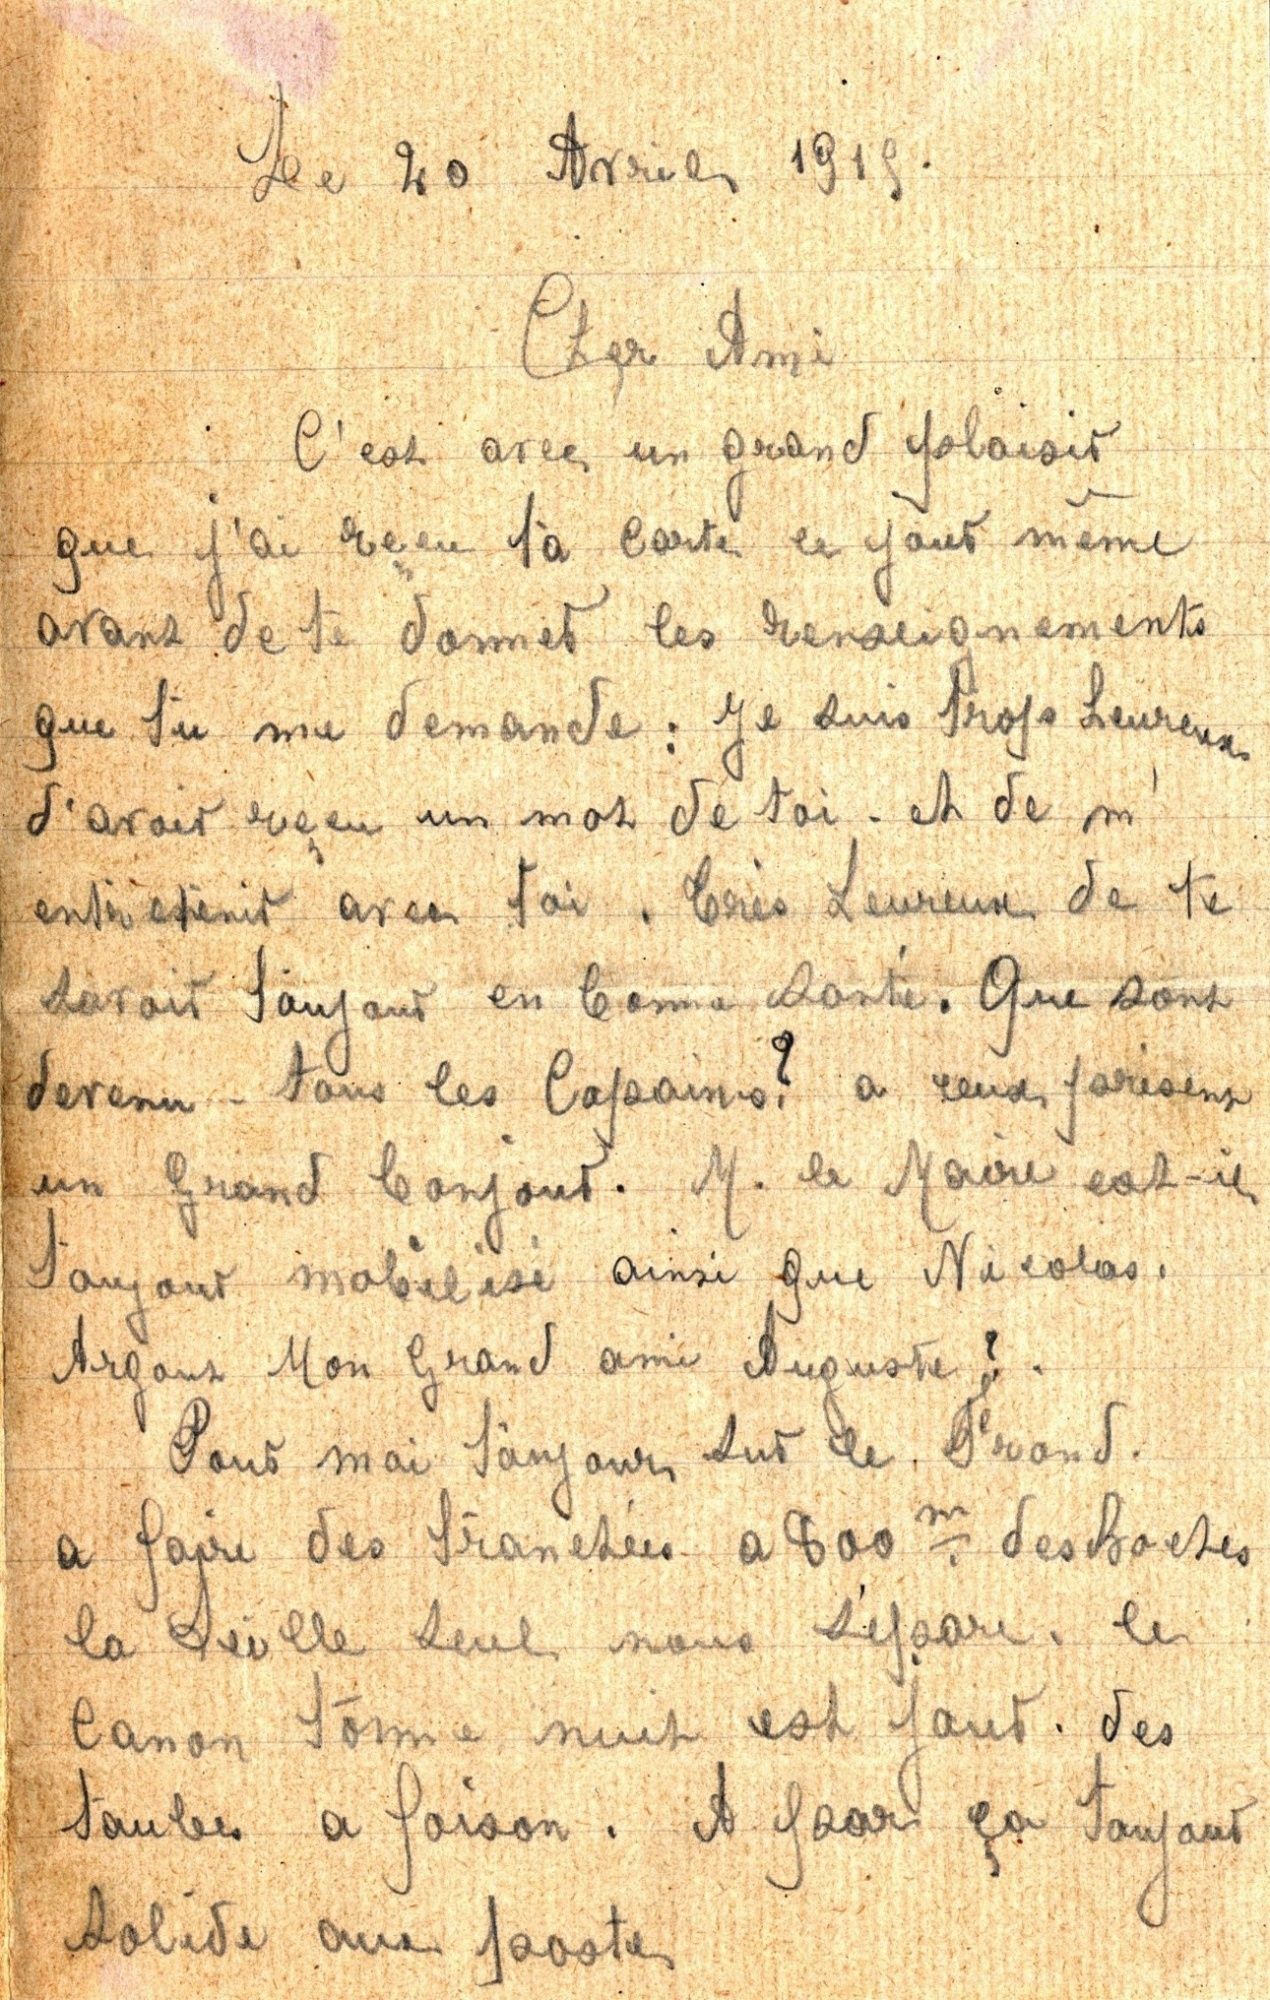 Le 20 Avril 1915.
Cher Ami
C'est avec un grand plaisir
que j'ai reçeu ta carte ce jour même
avant de te donner les renseignements
que tu me demande : Je suis trop heureux
d'avoir reçeu un mot de toi - et de m'
entretenir avec toi . Très heureux de te
savoir toujour en bonne santé. Que sont
devenu - tous les Copains? a ceux présent
un Grand bonjour. M. le Maire est-il
toujour mobilisé ainsi que Nicolas.
Argout Mon Grand ami Auguste ? .
Pour moi toujours sur le Front.
a faire des tranchées a 800 m. des Boches
la Seille seul nous sépare. le
Canon tonne nuit est jour. des
taubes a foison . A par ça toujour
solide aux poste